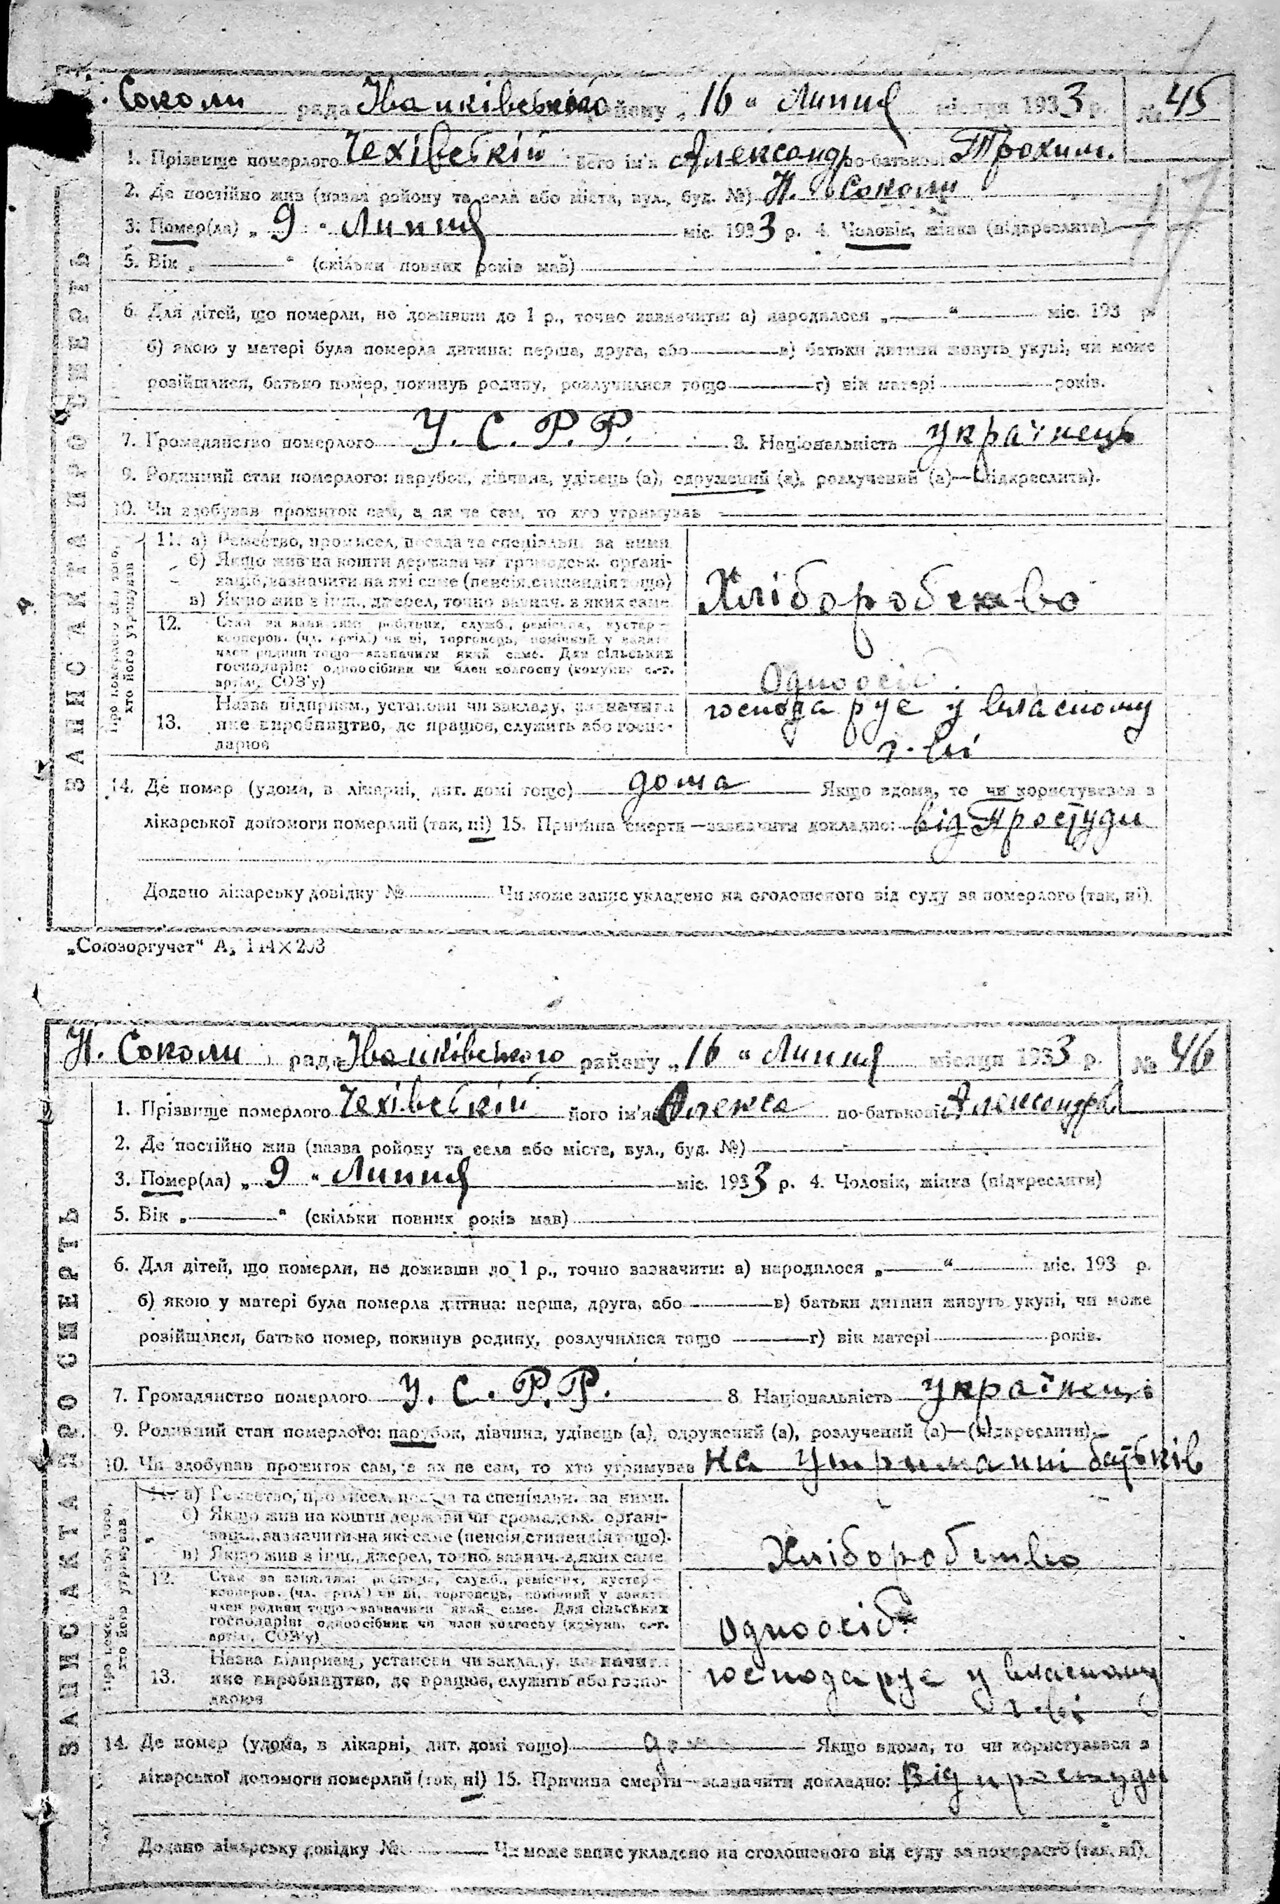 Н. Соколи рада Іванківського району „ 16 “ Липня місяця 1933 р. № 45
ЗАПИС АКТА ПРО СМЕРТЬ
1. Прізвище померлого Чехівський його ім'я Александр по-батькові Трохим.
2. Де постійно жив (назва району та села або міста, вул., буд. №) Н. Соколи
3. Помер(ла) „ 9 “ Липня міс. 1933 р. 4. Чоловік, жінка (підкреслити)
5. Вік „ “ (скільки повних років мав)
6. Для дітей, що померли, не доживши до 1 р., точно зазначити: а) народилося „ “ міс. 193 р.
б) якою у матері була померла дитина: перша, друга, або в) батьки дитини живуть укупі, чи може
розійшлися, батько помер, покинув родину, розлучилися тощо г) вік матері років.
7. Громадянство померлого У.С.Р.Р. 8. Національність українець
9. Родинний стан померлого: парубок, дівчина, удівець (а), одружений (а), розлучений (а)—(підкреслити).
10. Чи здобував прожиток сам, а як не сам, то хто утримував
Про померлого або того, хто його утримував
11. а) Ремество, промисел, посада та спеціяльн. за ними
б) Якщо жив на кошти держави чи громадськ. органі-
зації, зазначити на які саме (пенсія, стипендія тощо)
в) Якщо жив з інш. джерел, точно зазнач. з яких саме
Хліборобство
12. Стан за заняттям: робітник, служб., ремісник, кустар-
коопер. (чл. артілі) чи ні, торговець, помічний у занятт.
член родини тощо—зазначити який саме. Для сільських
господарів: одноосібник чи член колгоспу (комуни, с.-г.
артілі, СОЗ'у)
Одноосіб.
13. Назва підприєм., установи чи закладу, зазначити
яке виробництво, де працює, служить або госпо-
дарює
господарує у власному
г-ві
14. Де помер (удома, в лікарні, дит. домі тощо) дома Якщо вдома, то чи користувався з
лікарської допомоги померлий (так, ні) 15. Причина смерти—зазначити докладно: від Простуди
Додано лікарську довідку № Чи може запис укладено на оголошеного від суду за померлого (так, ні).
„Союзоргучет“ А₅ 114×203
Н. Соколи рада Іванківського району „ 16 “ Липня місяця 1933 р. № 46
ЗАПИС АКТА ПРО СМЕРТЬ
1. Прізвище померлого Чехівський його ім'я Олекса по-батькові Александр.
2. Де постійно жив (назва району та села або міста, вул., буд. №)
3. Помер(ла) „ 9 “ Липня міс. 1933 р. 4. Чоловік, жінка (підкреслити)
5. Вік „ “ (скільки повних років мав)
6. Для дітей, що померли, не доживши до 1 р., точно зазначити: а) народилося „ “ міс. 193 р.
б) якою у матері була померла дитина: перша, друга, або в) батьки дитини живуть укупі, чи може
розійшлися, батько помер, покинув родину, розлучилися тощо г) вік матері років.
7. Громадянство померлого У.С.Р.Р. 8. Національність українець
9. Родинний стан померлого: парубок, дівчина, удівець (а), одружений (а), розлучений (а)—(підкреслити).
10. Чи здобував прожиток сам, а як не сам, то хто утримував на утриманні батьків
Про померлого або того, хто його утримував
11. а) Ремество, промисел, посада та спеціяльн. за ними.
б) Якщо жив на кошти держави чи громадськ. органі-
зації, зазначити на які саме (пенсія, стипендія тощо).
в) Якщо жив з інш., джерел, точно зазнач. з яких саме
Хліборобство
12. Стан за заняттям: робітник, служб., ремісник, кустар-
коопер. (чл. артілі) чи ні, торговець, помічний у занятт.
член родини тощо—зазначити який саме. Для сільських
господарів: одноосібник чи член колгоспу (комуни, с.-г.
артілі, СОЗ'у)
Одноосіб.
13. Назва підприєм., установи чи закладу, зазначити
яке виробництво, де працює, служить або госпо-
дарює
господарує у власному
г-ві
14. Де помер (удома, в лікарні, дит. домі тощо) дома Якщо вдома, то чи користувався з
лікарської допомоги померлий (так, ні) 15. Причина смерти—зазначити докладно: Від простуди
Додано лікарську довідку № Чи може запис укладено на оголошеного від суду за померлого (так, ні).